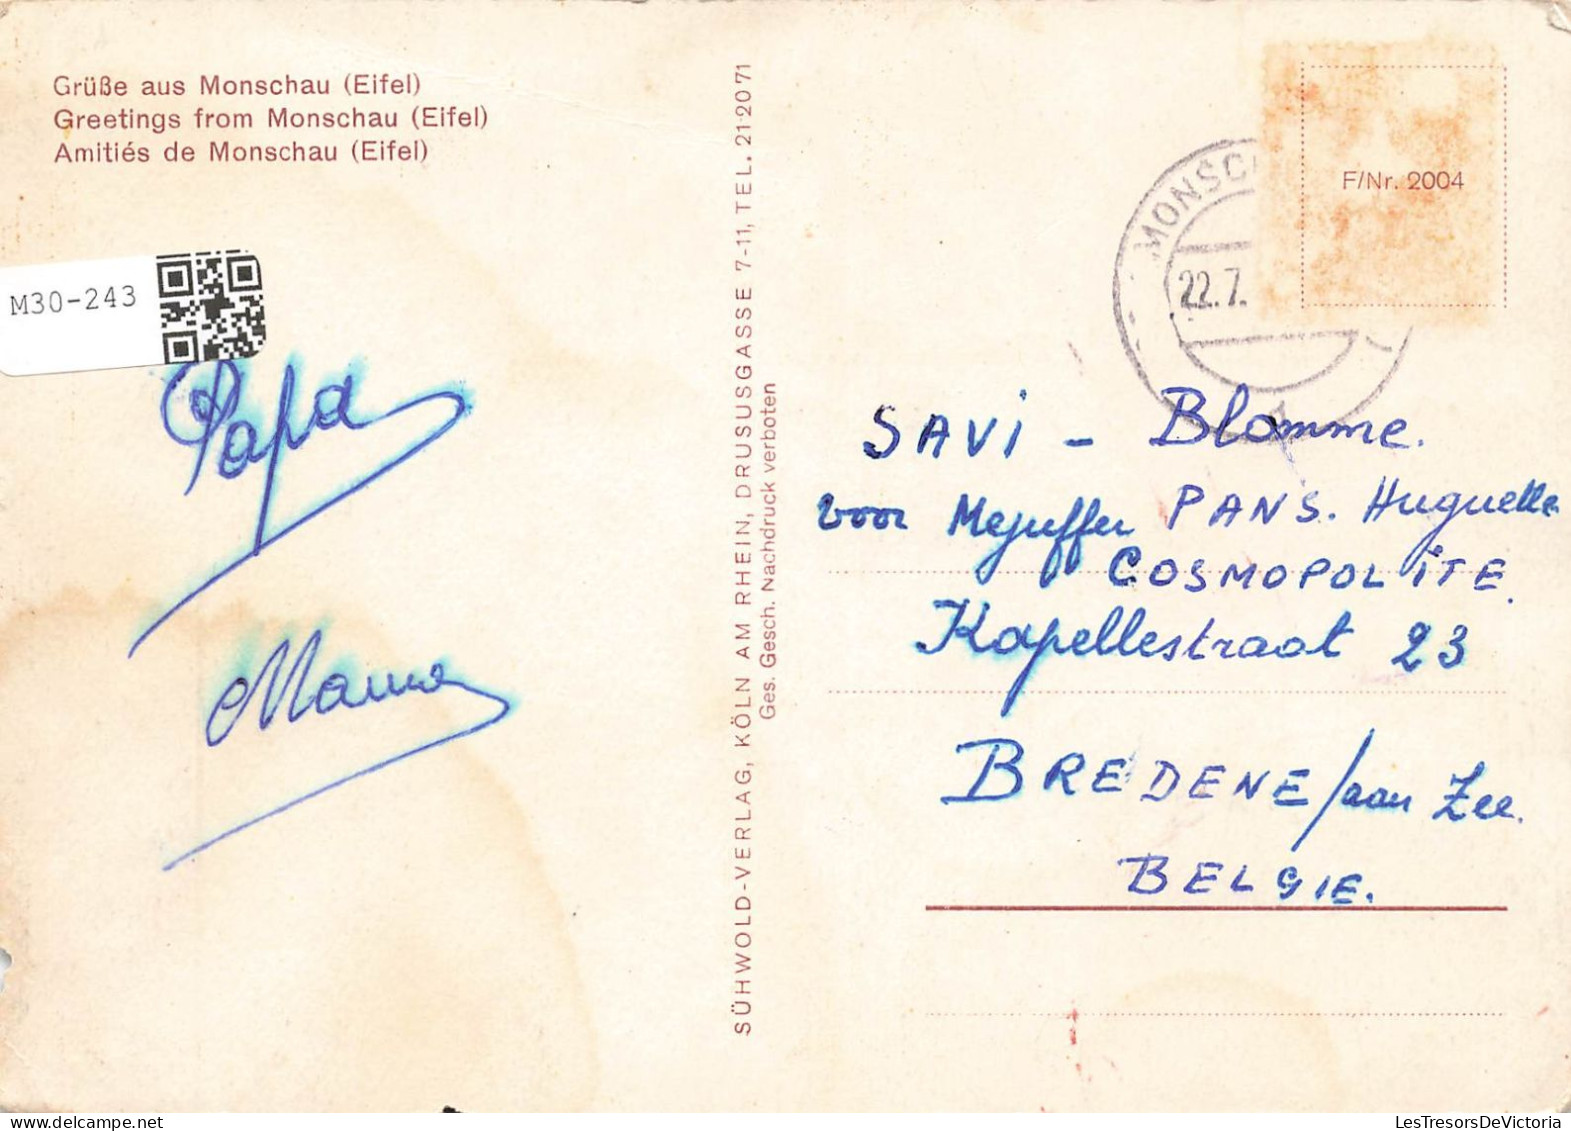 Grüße aus Monschau (Eifel)
Greetings from Monschau (Eifel)
Amitiés de Monschau (Eifel)
M30-243
Papa
Mama
SÜHWOLD-VERLAG, KÖLN AM RHEIN, DRUSUSGASSE 7-11, TEL. 21 20 71
Ges. Gesch. Nachdruck verboten
F/Nr. 2004
MONSC
22.7.
SAVI - Blomme.
voor Mejuffer PANS. Huguette
COSMOPOLITE.
Kapellestraat 23
BREDENE/aan Zee.
BELGIE.
LesTresorsDeVictoria